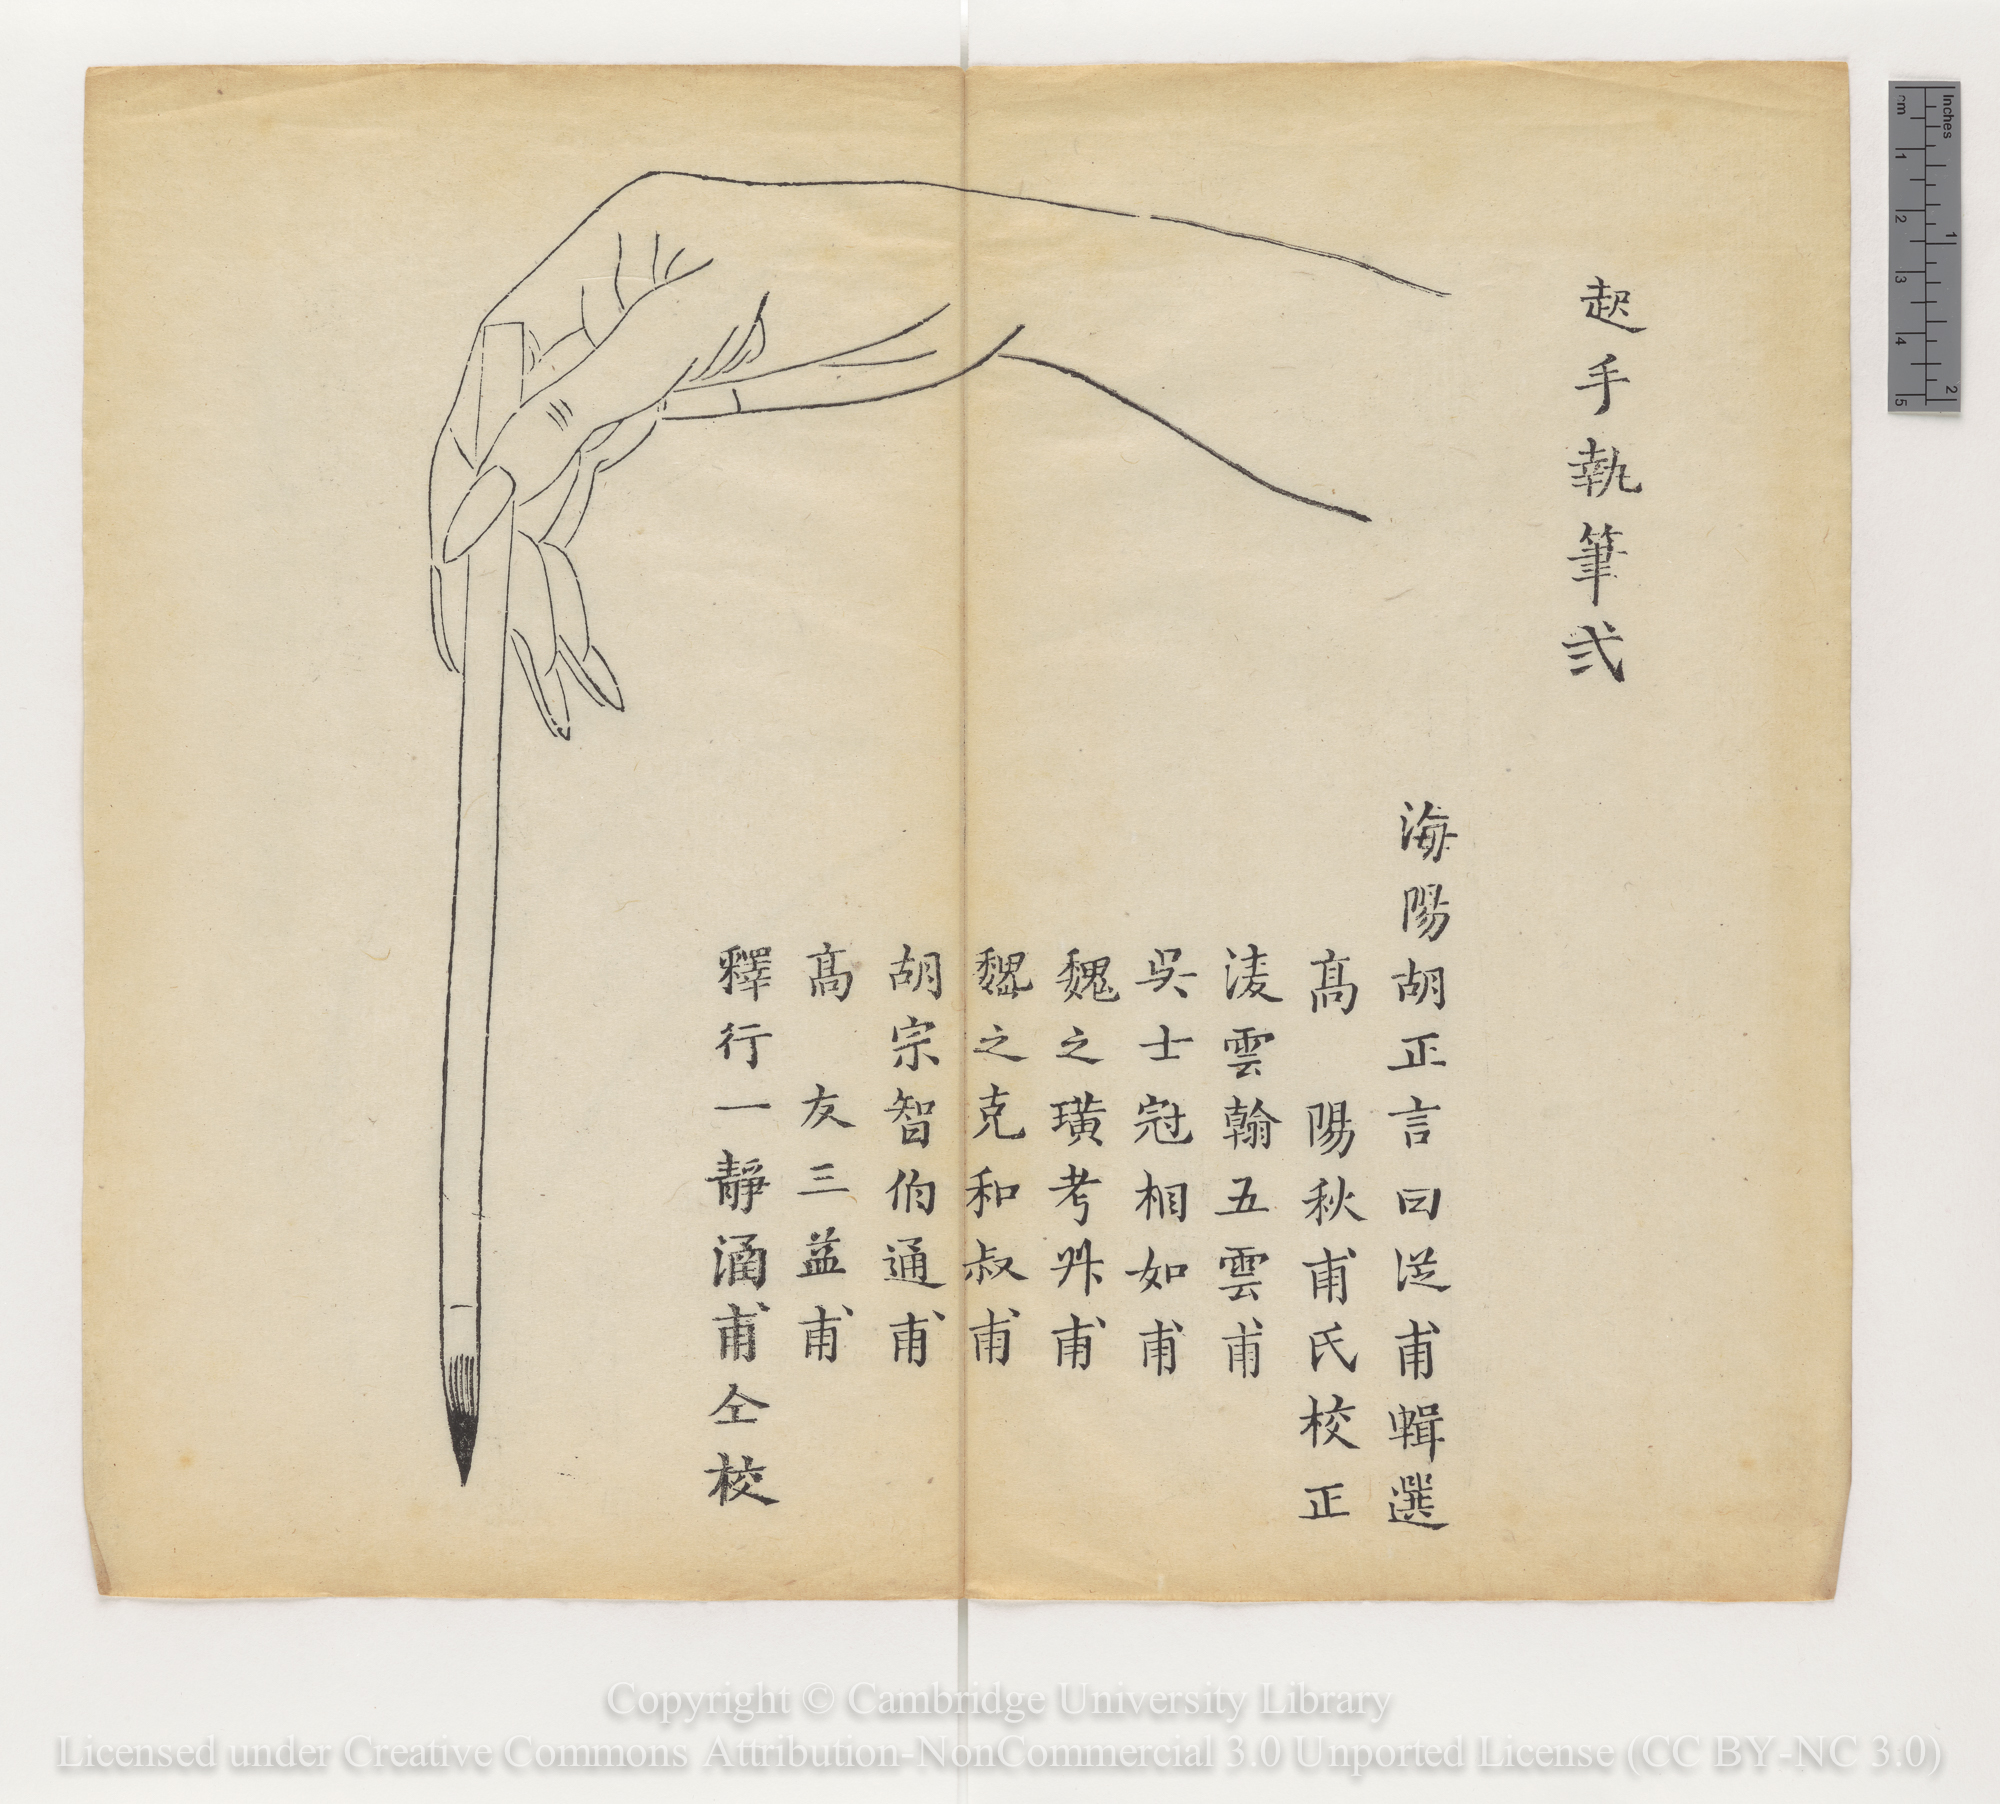 起手執筆弍
海陽胡正言曰從甫輯選
髙 陽秋甫氏校正
淩雲翰五雲甫
吳士冠相如甫
魏之璜考叔甫
魏之克和叔甫
胡宗智伯通甫
髙 友三益甫
釋行一靜涵甫仝校
Inches
cm
1
2
3
4
5
1
2
Copyright © Cambridge University Library
Licensed under Creative Commons Attribution-NonCommercial 3.0 Unported License (CC BY-NC 3.0)